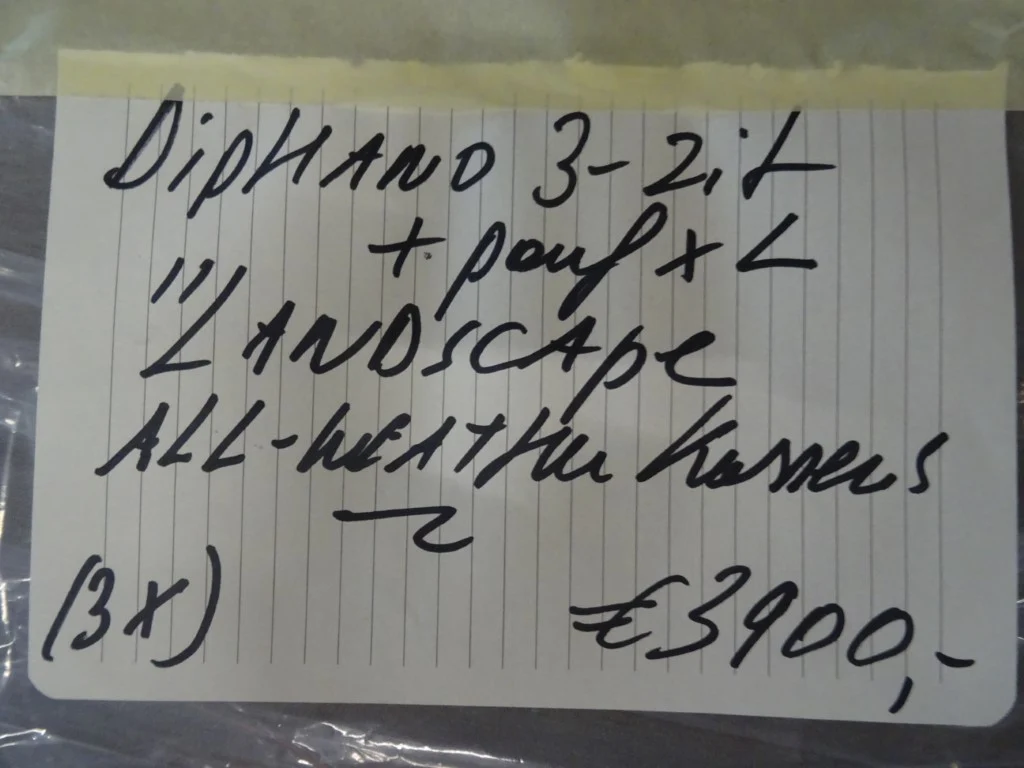 DipHANO 3-2,iL
+ pouf XL
"LANDSCAPE
ALL-WEATHER Kussens
(3x) €3900,-